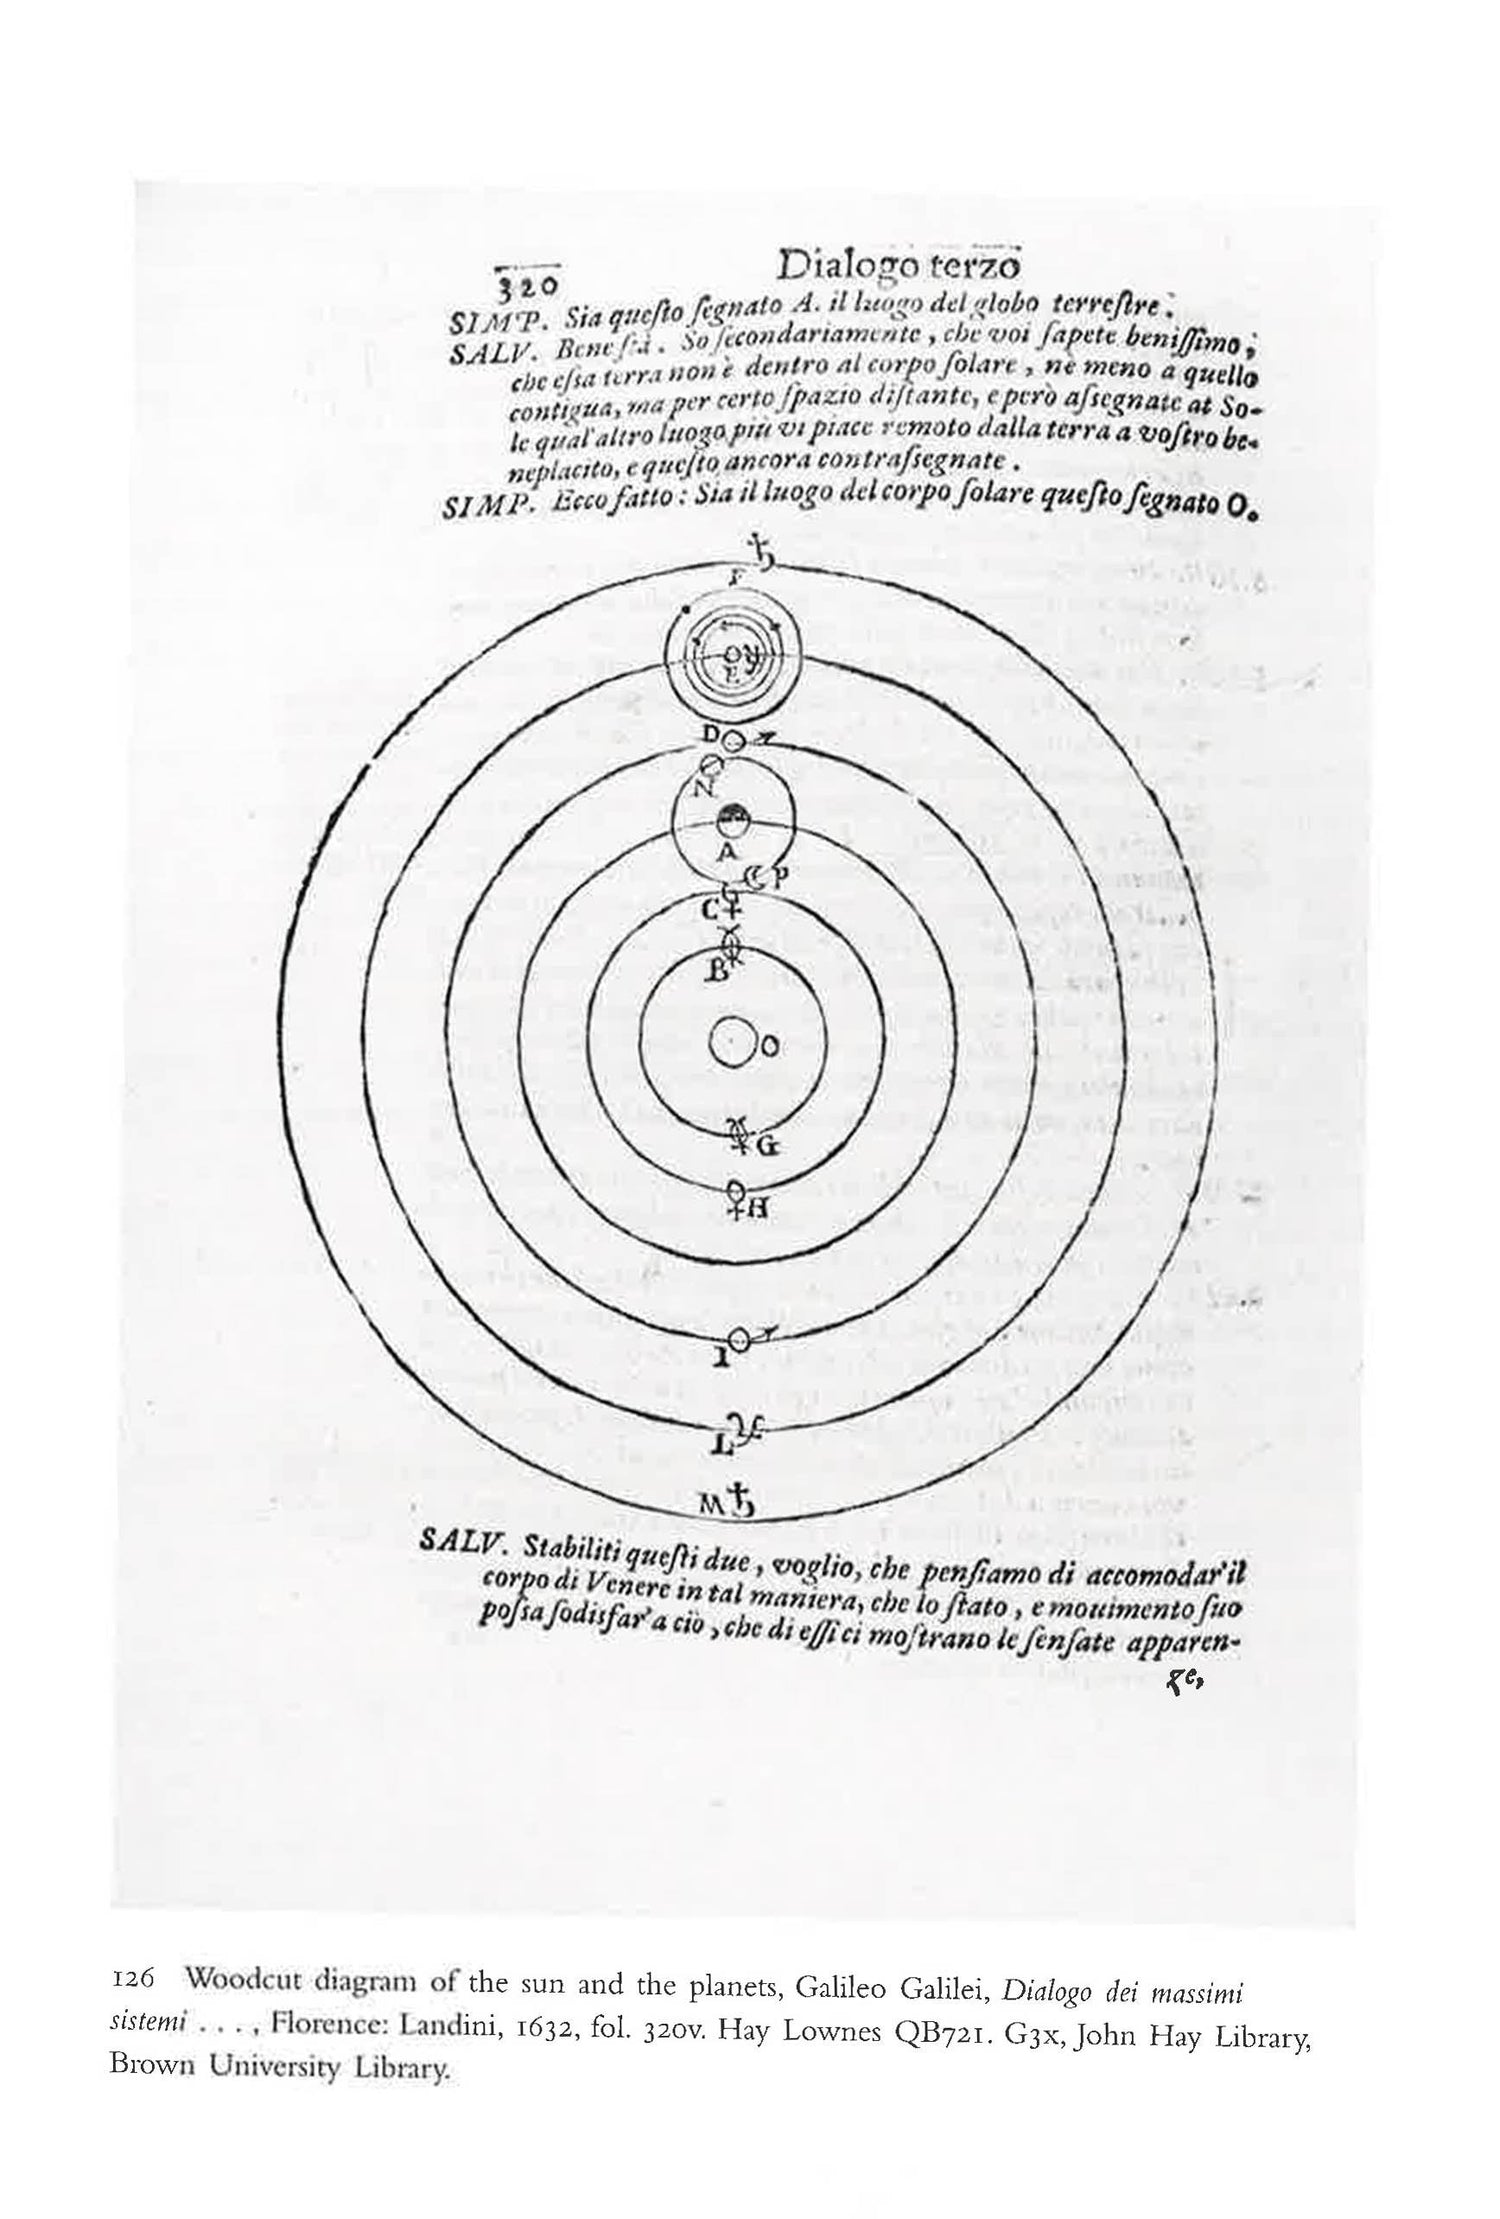 320 Dialogo terzo
SIMP. Sia queſto ſegnato A. il luogo del globo terreſtre.
SALV. Bene ſtà. So ſecondariamente, che voi ſapete beniſſimo;
che eſsa terra non è dentro al corpo ſolare, ne meno a quello
contigua, ma per certo ſpazio diſtante, e però aſsegnate at So-
le qual'altro luogo più vi piace remoto dalla terra a voſtro be-
neplacito, e queſto ancora contraſsegnate.
SIMP. Ecco fatto: Sia il luogo del corpo ſolare queſto ſegnato O.
♄
F
♃
E
D ♂
N
A
☾ P
C ♀
☿
B
O
☿ G
♀ H
♂
I
♃
L
M ♄
SALV. Stabiliti queſti due, voglio, che penſiamo di accomodar'il
corpo di Venere in tal maniera, che lo ſtato, e mouimento ſuo
poſsa ſodisfar'a ciò, che di eſſi ci moſtrano le ſenſate apparen-
ze,
126 Woodcut diagram of the sun and the planets, Galileo Galilei, Dialogo dei massimi
sistemi . . . , Florence: Landini, 1632, fol. 320v. Hay Lownes QB721. G3x, John Hay Library,
Brown University Library.